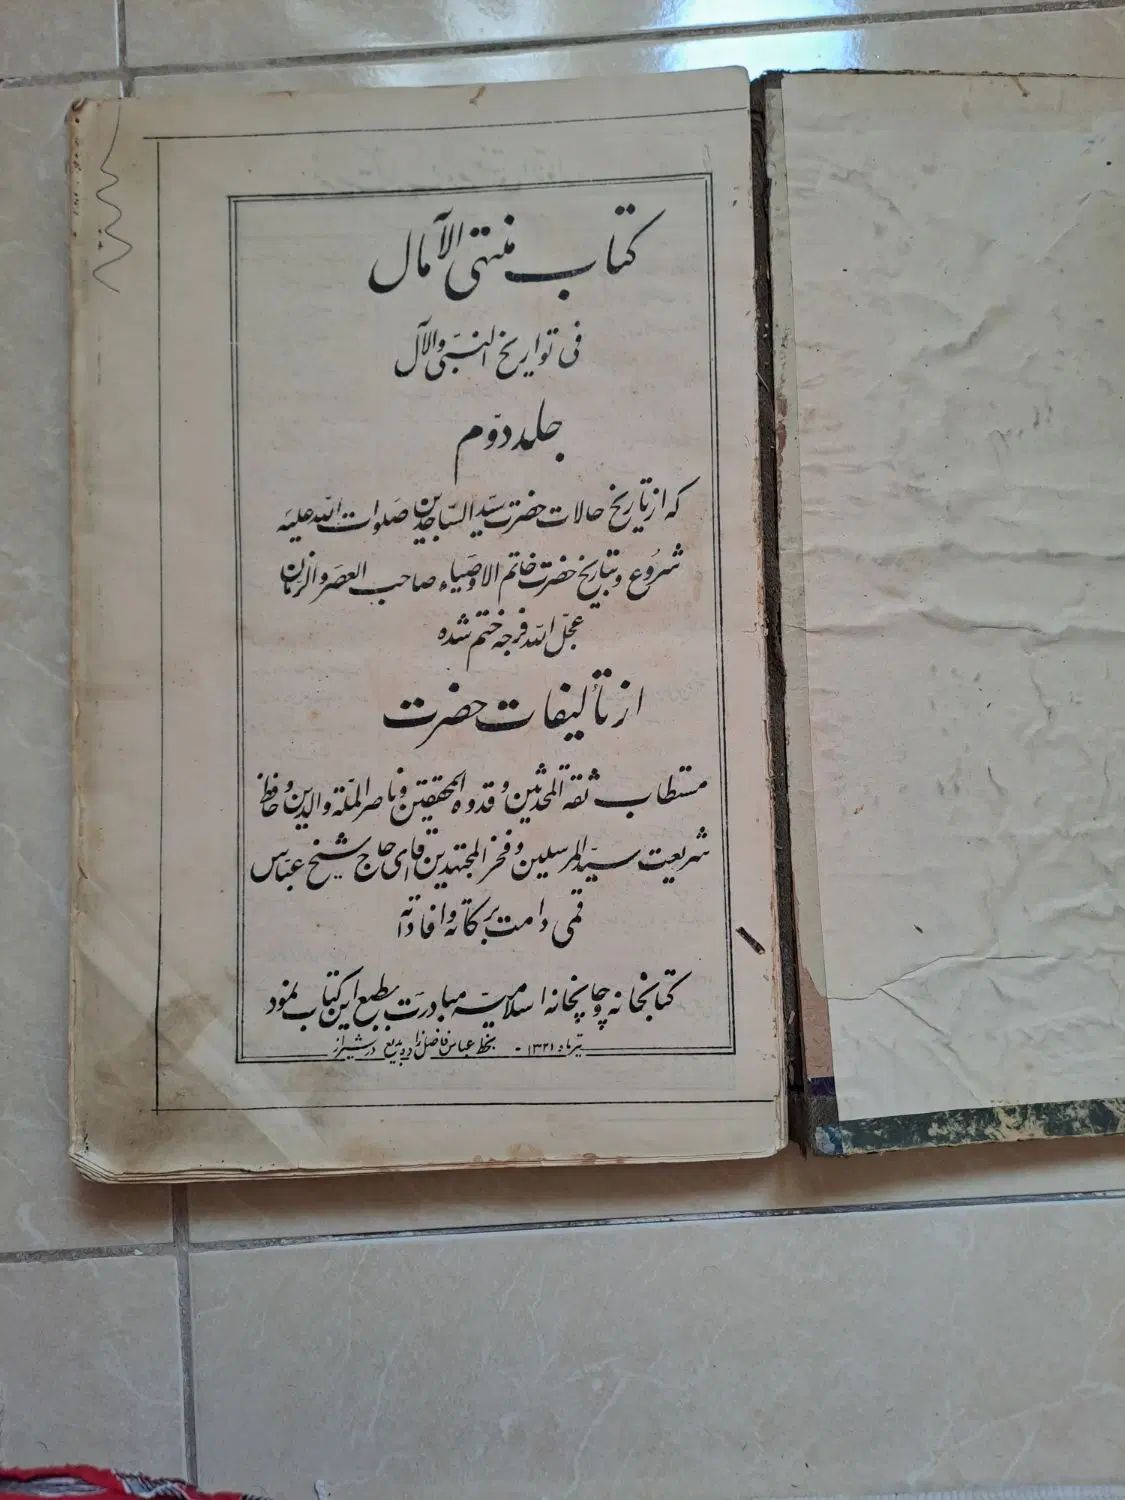 کتاب منتهی الآمال
فی تواریخ النبیّ والآل
جلد دوّم
که از تاریخ حالات حضرت سیّد السّاجدین صَلوات الله علیه
شروع و بتاریخ حضرت خاتم الاوصیاء صاحب العصر والزمان
عجّل الله فرجه ختم شده
از تألیفات حضرت
مستطاب ثقة المحدثین و قدوة المحققین و ناصر الملّة والدین و حافظ
شریعت سیّد المرسلین و فخر المجتهدین آقای حاج شیخ عبّاس
قمی دامت برکاته و افاداته
کتابخانه و چاپخانه اسلامیّه مبادرت بطبع این کتاب نمود
تیرماه ۱۳۲۱ - بخط عباس فاضل زاده بدیع در شیراز